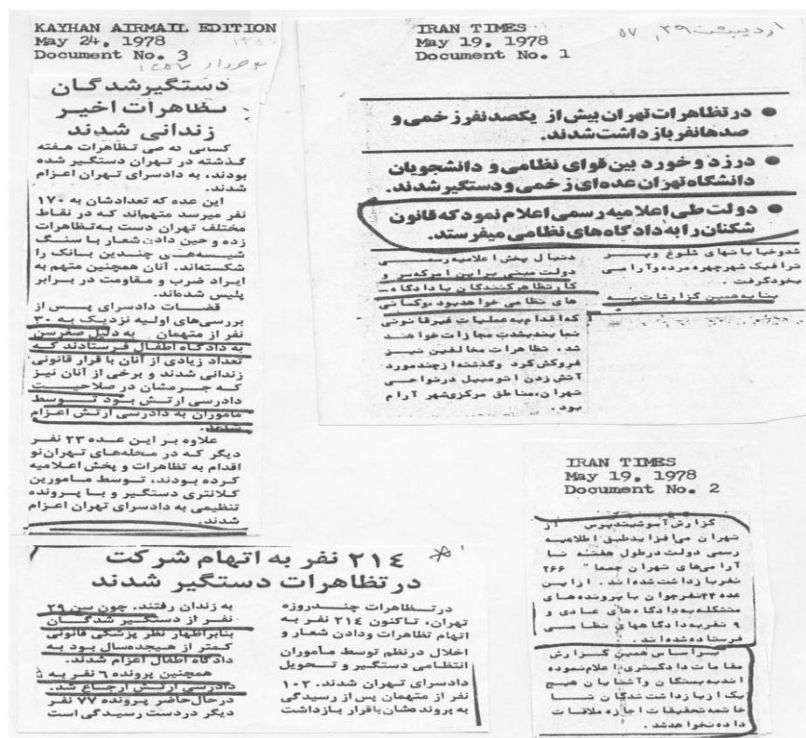 KAYHAN AIRMAIL EDITION
May 24, 1978
Document No. 3
دستگیرشدگان
تظاهرات اخیر
زندانی شدند
کسانی که طی تظاهرات هفته
گذشته در تهران دستگیر شده
بودند، به دادسرای تهران اعزام
شدند.
این عده که تعدادشان به ۱۷۰
نفر میرسد متهم‌اند که در نقاط
مختلف تهران دست به‌تظاهرات
زده و حین دادن شعار با سنگ
شیشه‌های چندین بانک را
شکسته‌اند. آنان همچنین متهم به
ایراد ضرب و مقاومت در برابر
پلیس شده‌اند.
قضات دادسرای پس از
بررسی‌های اولیه نزدیک به ۳۰
نفر از متهمان به دلیل صغر سن
به دادگاه اطفال فرستادند که
تعداد زیادی از آنان با قرار قانونی
زندانی شدند و برخی از آنان نیز
که جرمشان در صلاحیت
دادرسی ارتش بود توسط
ماموران به دادرسی ارتش اعزام
شدند.
علاوه بر این عده ۲۳ نفر
دیگر که در محله‌های تهران‌نو
اقدام به تظاهرات و پخش اعلامیه
کرده بودند، توسط مامورین
کلانتری دستگیر و با پرونده
تنظیمی به دادسرای تهران اعزام
شدند.
IRAN TIMES
May 19, 1978
Document No. 1
اردیبهشت ۲۹, ۵۷
در تظاهرات تهران بیش از یکصد نفر زخمی و
صدها نفر بازداشت شدند.
در زد و خورد بین قوای نظامی و دانشجویان
دانشگاه تهران عده‌ای زخمی و دستگیر شدند.
دولت طی اعلامیه رسمی اعلام نمود که قانون
شکنان را به دادگاه‌های نظامی میفرستد.
دنبال پخش اعلامیه رسمی
دولت مبنی براین امر که من
کار تظاهر کنندگان با دادگاه
های نظامی خواهد بود، و کسانی
که اقدام به عملیات غیرقانونی
نمایند بشدت مجازات خواهند
شد تظاهرات مخالفین نیز
فروکش کرد و گذشته از چند مورد
آتش زدن اتومبیل در نواحی
تهران، مناطق مرکزی شهر آرام
بود.
شد و خیابانهای شلوغ و پر
ترافیک شهر چهره مرده و آرامی
بخود گرفت.
بنا به همین گزارشات به
IRAN TIMES
May 19, 1978
Document No. 2
گزارش آسوشیتدپرس از
تهران می افزاید طبق اطلاعیه
رسمی دولت در طول هفته نا
آرامی‌های تهران جمعا" ۲۶۶
نفر بازداشت شده اند. از این
عده ۴۴ نفر جوان با پرونده های
متشکله به دادگاه های عادی و
۹ نفر به دادگاههای نظامی
فرستاده شده اند.
براساس همین گزارش
مقامات دادگستری اعلام نموده
اند به بستگان و آشنایان هیچ
یک از بازداشت شدگان تا
خاتمه تحقیقات اجازه ملاقات
داده نخواهد شد.
۲۱۴ نفر به اتهام شرکت
در تظاهرات دستگیر شدند
در تظاهرات چند روزه
تهران، تاکنون ۲۱۴ نفر به
اتهام تظاهرات و دادن شعار و
اخلال در نظم توسط ماموران
انتظامی دستگیر و تحویل
دادسرای تهران شدند. ۱۰۲
نفر از متهمان پس از رسیدگی
به پرونده‌شان باقرار بازداشت
به زندان رفتند. چون سن ۲۹
نفر از دستگیر شدگان
بنابر اظهار نظر پزشکی قانونی
کمتر از هیجده سال بود به
دادگاه اطفال اعزام شدند.
همچنین پرونده ۶ نفر به
دادرسی ارتش ارجاع شد.
در حال حاضر پرونده ۷۷ نفر
دیگر در دست رسیدگی است